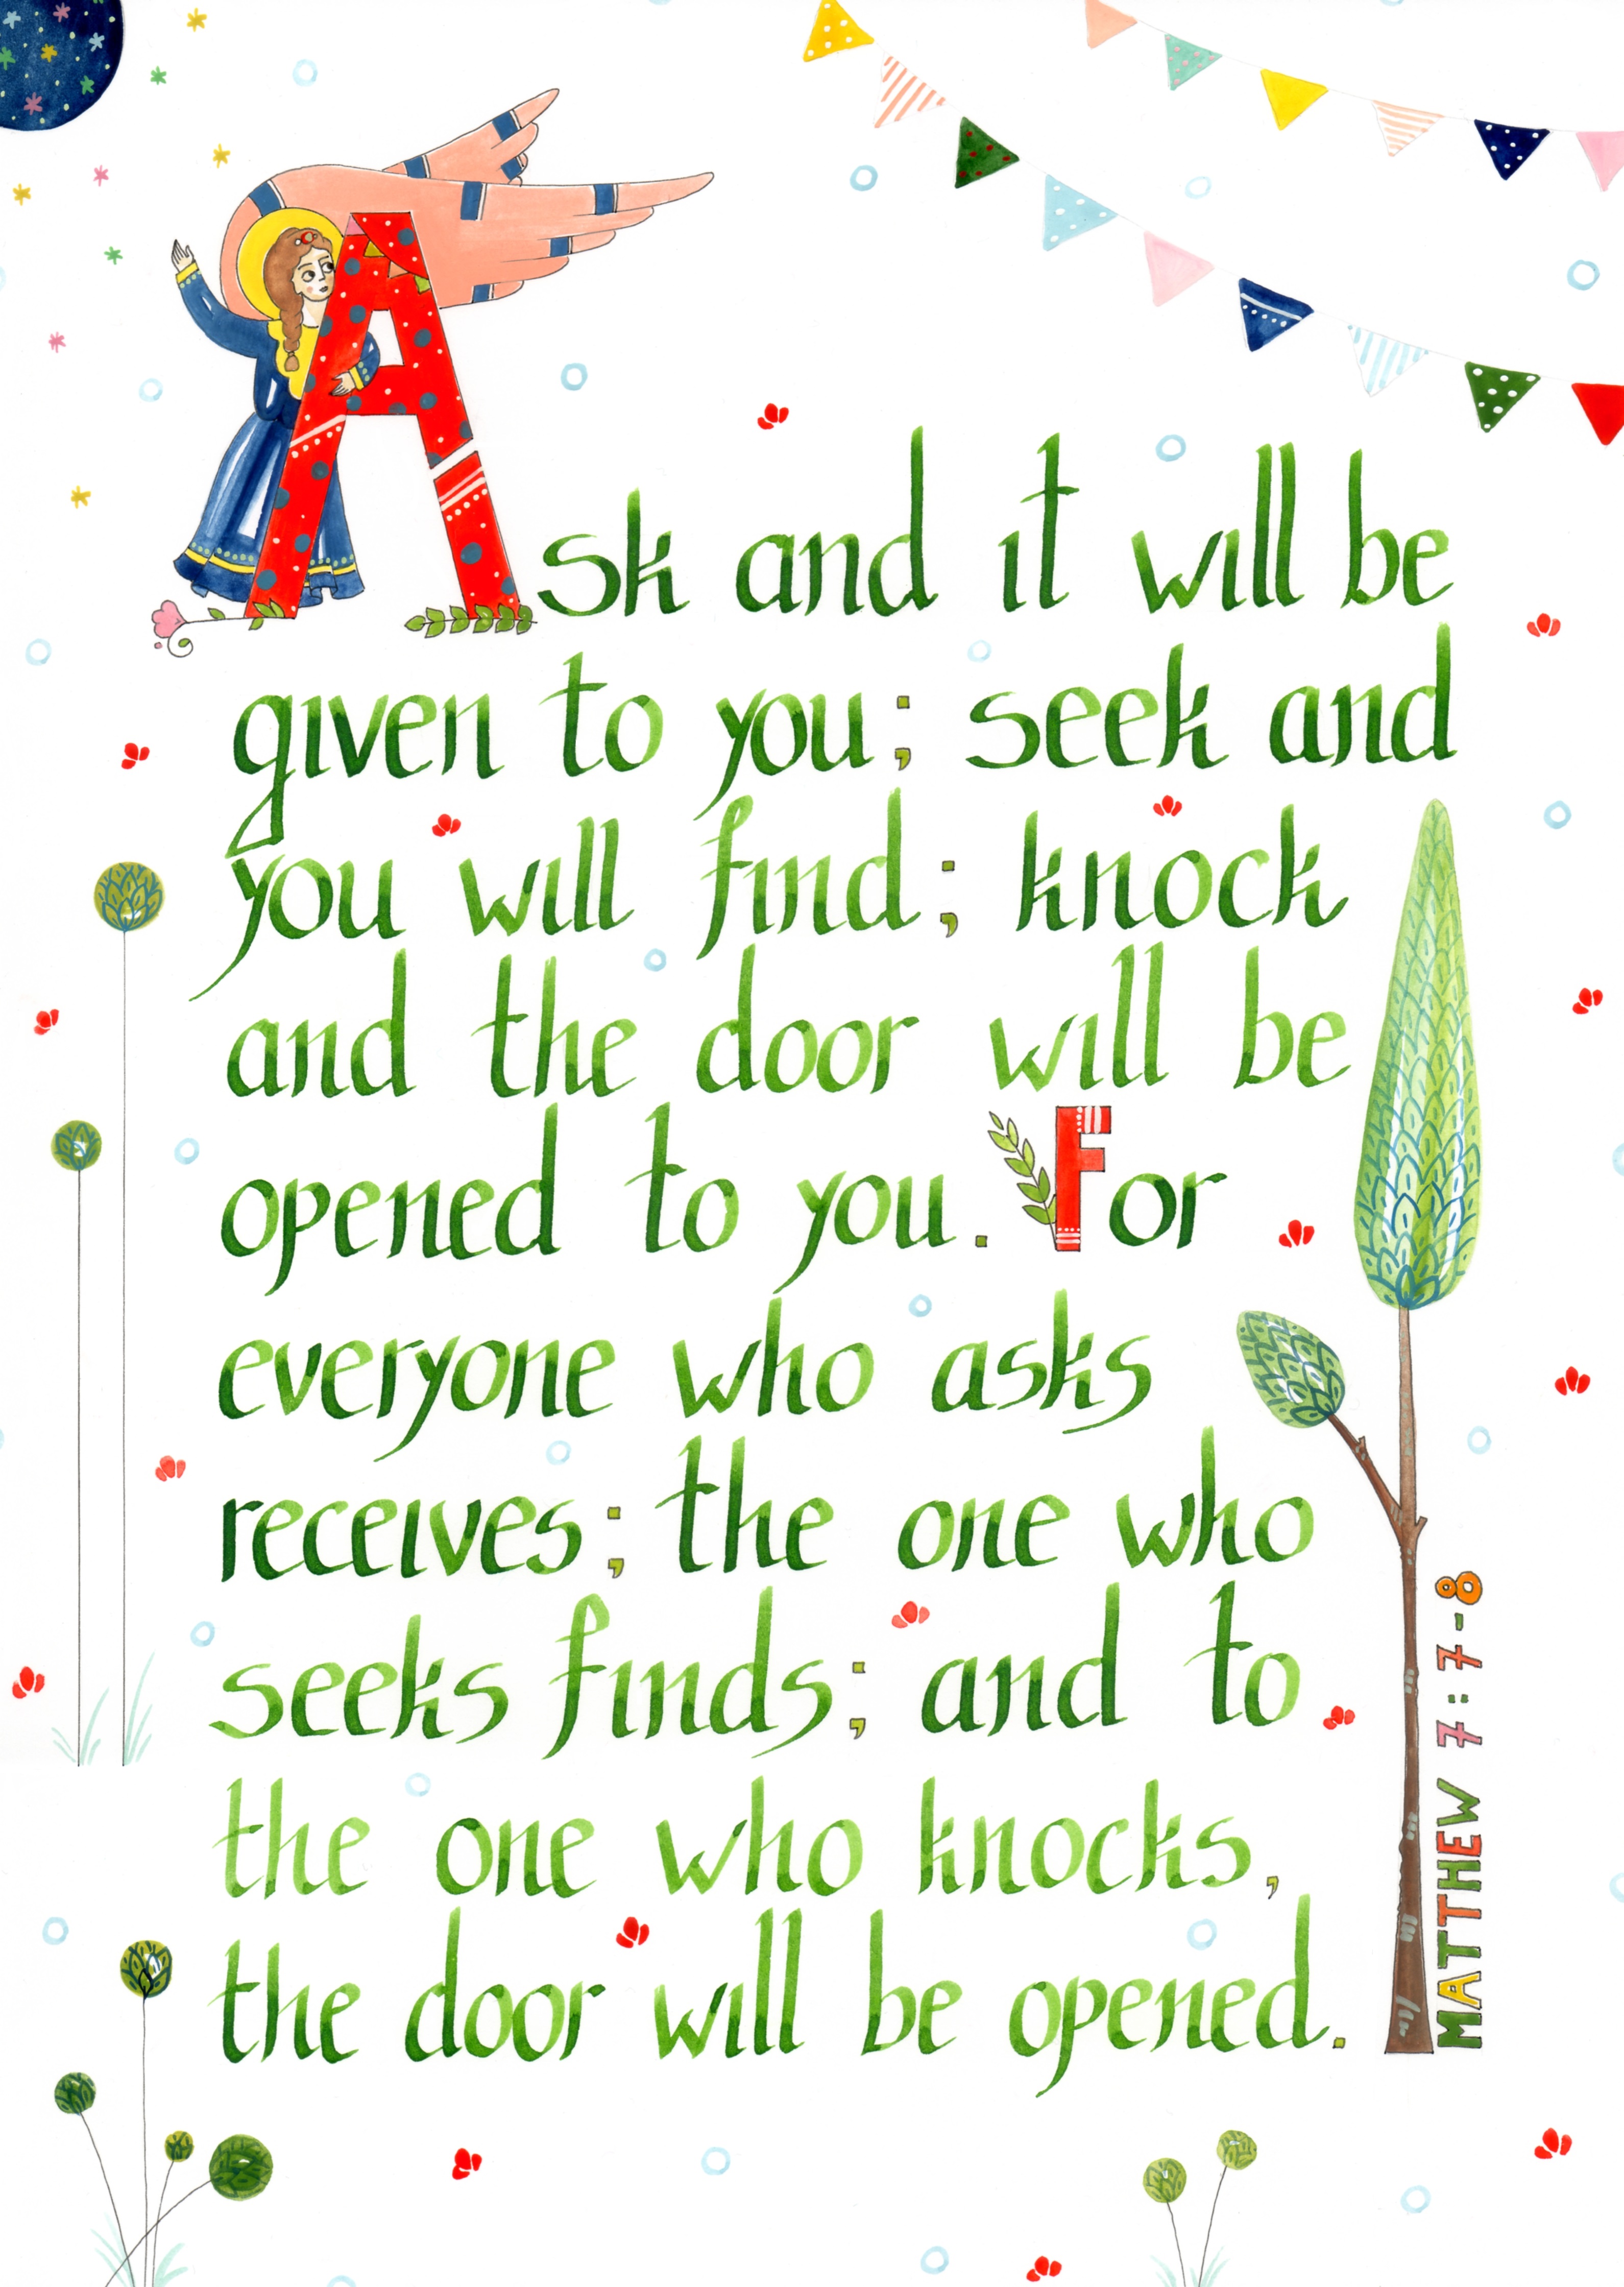 Ask and it will be
given to you; seek and
you will find; knock
and the door will be
opened to you. For
everyone who asks
receives; the one who
seeks finds; and to
the one who knocks,
the door will be opened.
MATTHEW 7:7-8